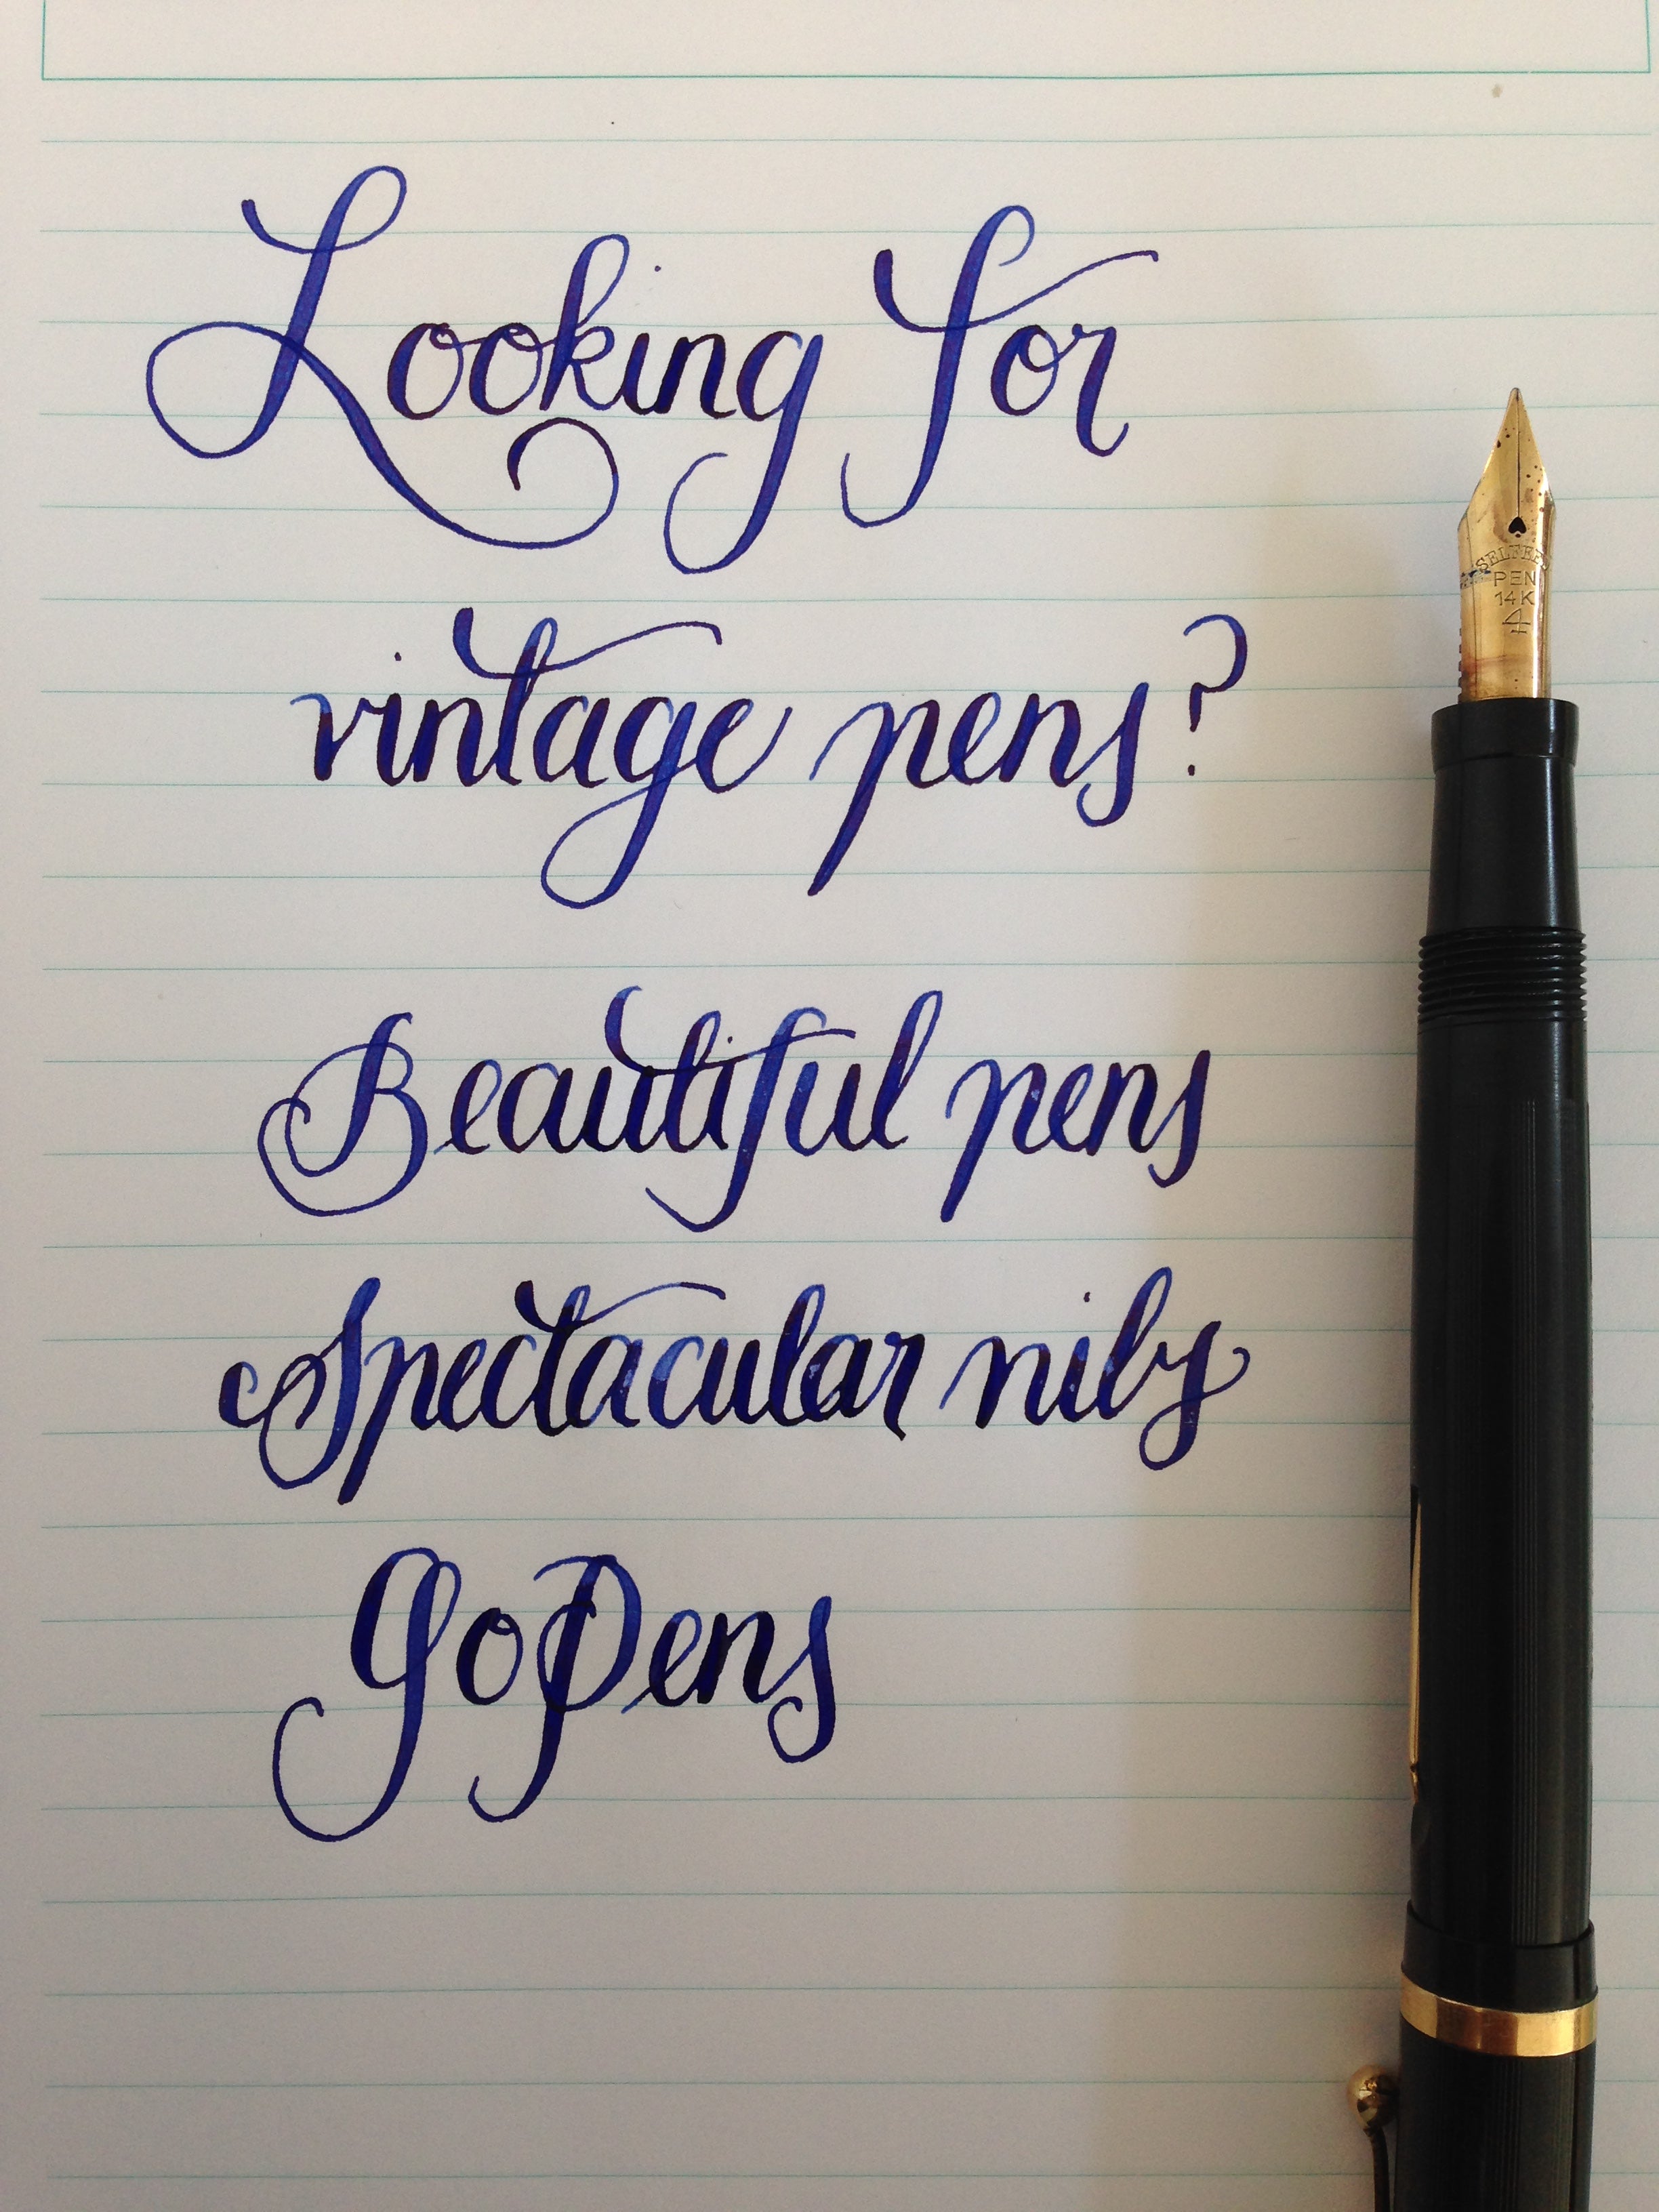 Looking for
vintage pens?
Beautiful pens
Spectacular nibs
GoPens
PEN
14K
4